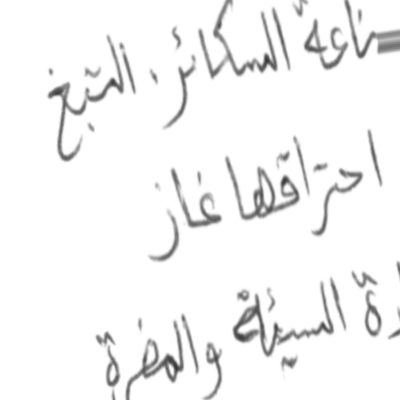 ناعة السكائر. التبغ
احتراقها غاز
رة السيئة والمضرة